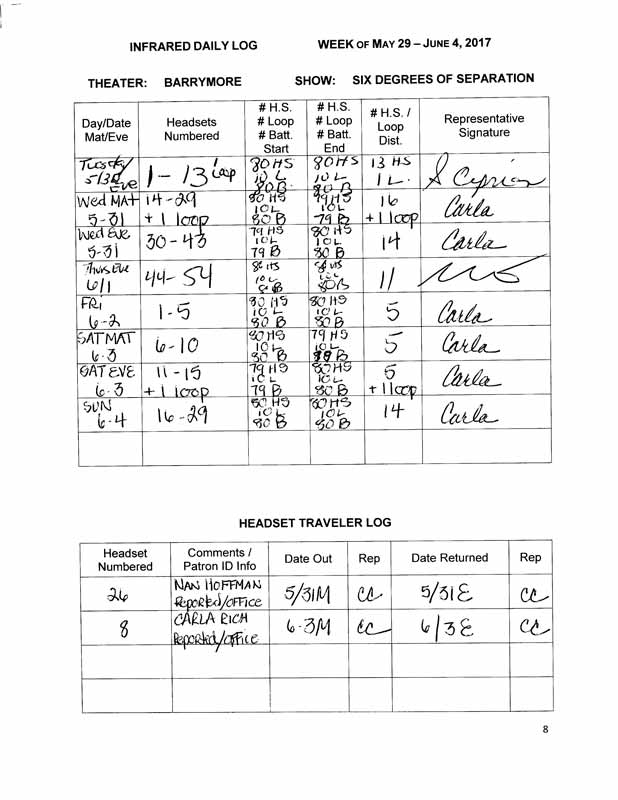 INFRARED DAILY LOG WEEK OF MAY 29 – JUNE 4, 2017
THEATER: BARRYMORE SHOW: SIX DEGREES OF SEPARATION
Day/Date Mat/Eve Headsets Numbered # H.S. # Loop # Batt. Start # H.S. # Loop # Batt. End # H.S. / Loop Dist. Representative Signature
Tuesday 5/30 Eve 1 - 13 1 Loop 80 HS 10 L 80 B 80 HS 10 L 80 B 13 HS 1 L. S Cyprian
Wed MAT 5-31 14-29 + 1 loop 80 HS 10 L 80 B 79 HS 10 L 79 B 16 + 1 loop Carla
Wed Eve 5-31 30-43 79 HS 10 L 79 B 80 HS 10 L 80 B 14 Carla
Thurs Eve 6/1 44-54 80 HS 10 L 80 B 80B 11
FRi 6-2 1-5 80 HS 10 L 80 B 80 HS 10 L 80 B 5 Carla
SAT MAT 6-3 6-10 80 HS 10 L 80 B 79 HS 10 L 5 Carla
SAT EVE 6-3 11-15 + 1 loop 79 HS 10 L 79 B 80 HS 10 L 80 B 5 + 1 loop Carla
SUN 6-4 16-29 80 HS 10 L 80 B 80 HS 10 L 80 B 14 Carla
HEADSET TRAVELER LOG
Headset Numbered Comments / Patron ID Info Date Out Rep Date Returned Rep
26 NAN HOFFMAN Reported/office 5/31M CC 5/31E CC
8 CARLA RICH Reported/office 6-3M CC 6/3E CC
8